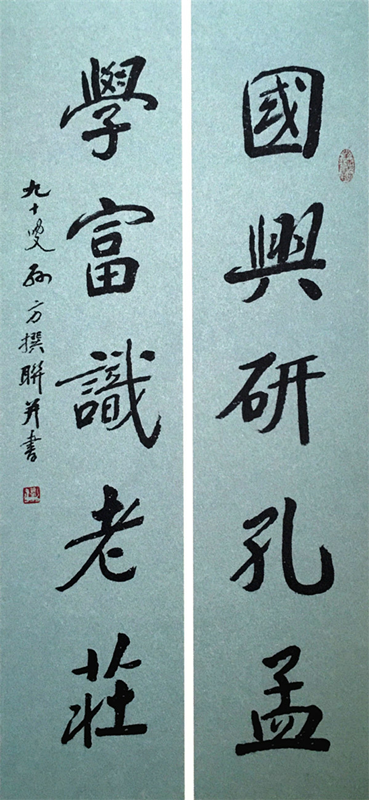 國興研孔孟
學富識老莊
九十叟孫方撰聯并書